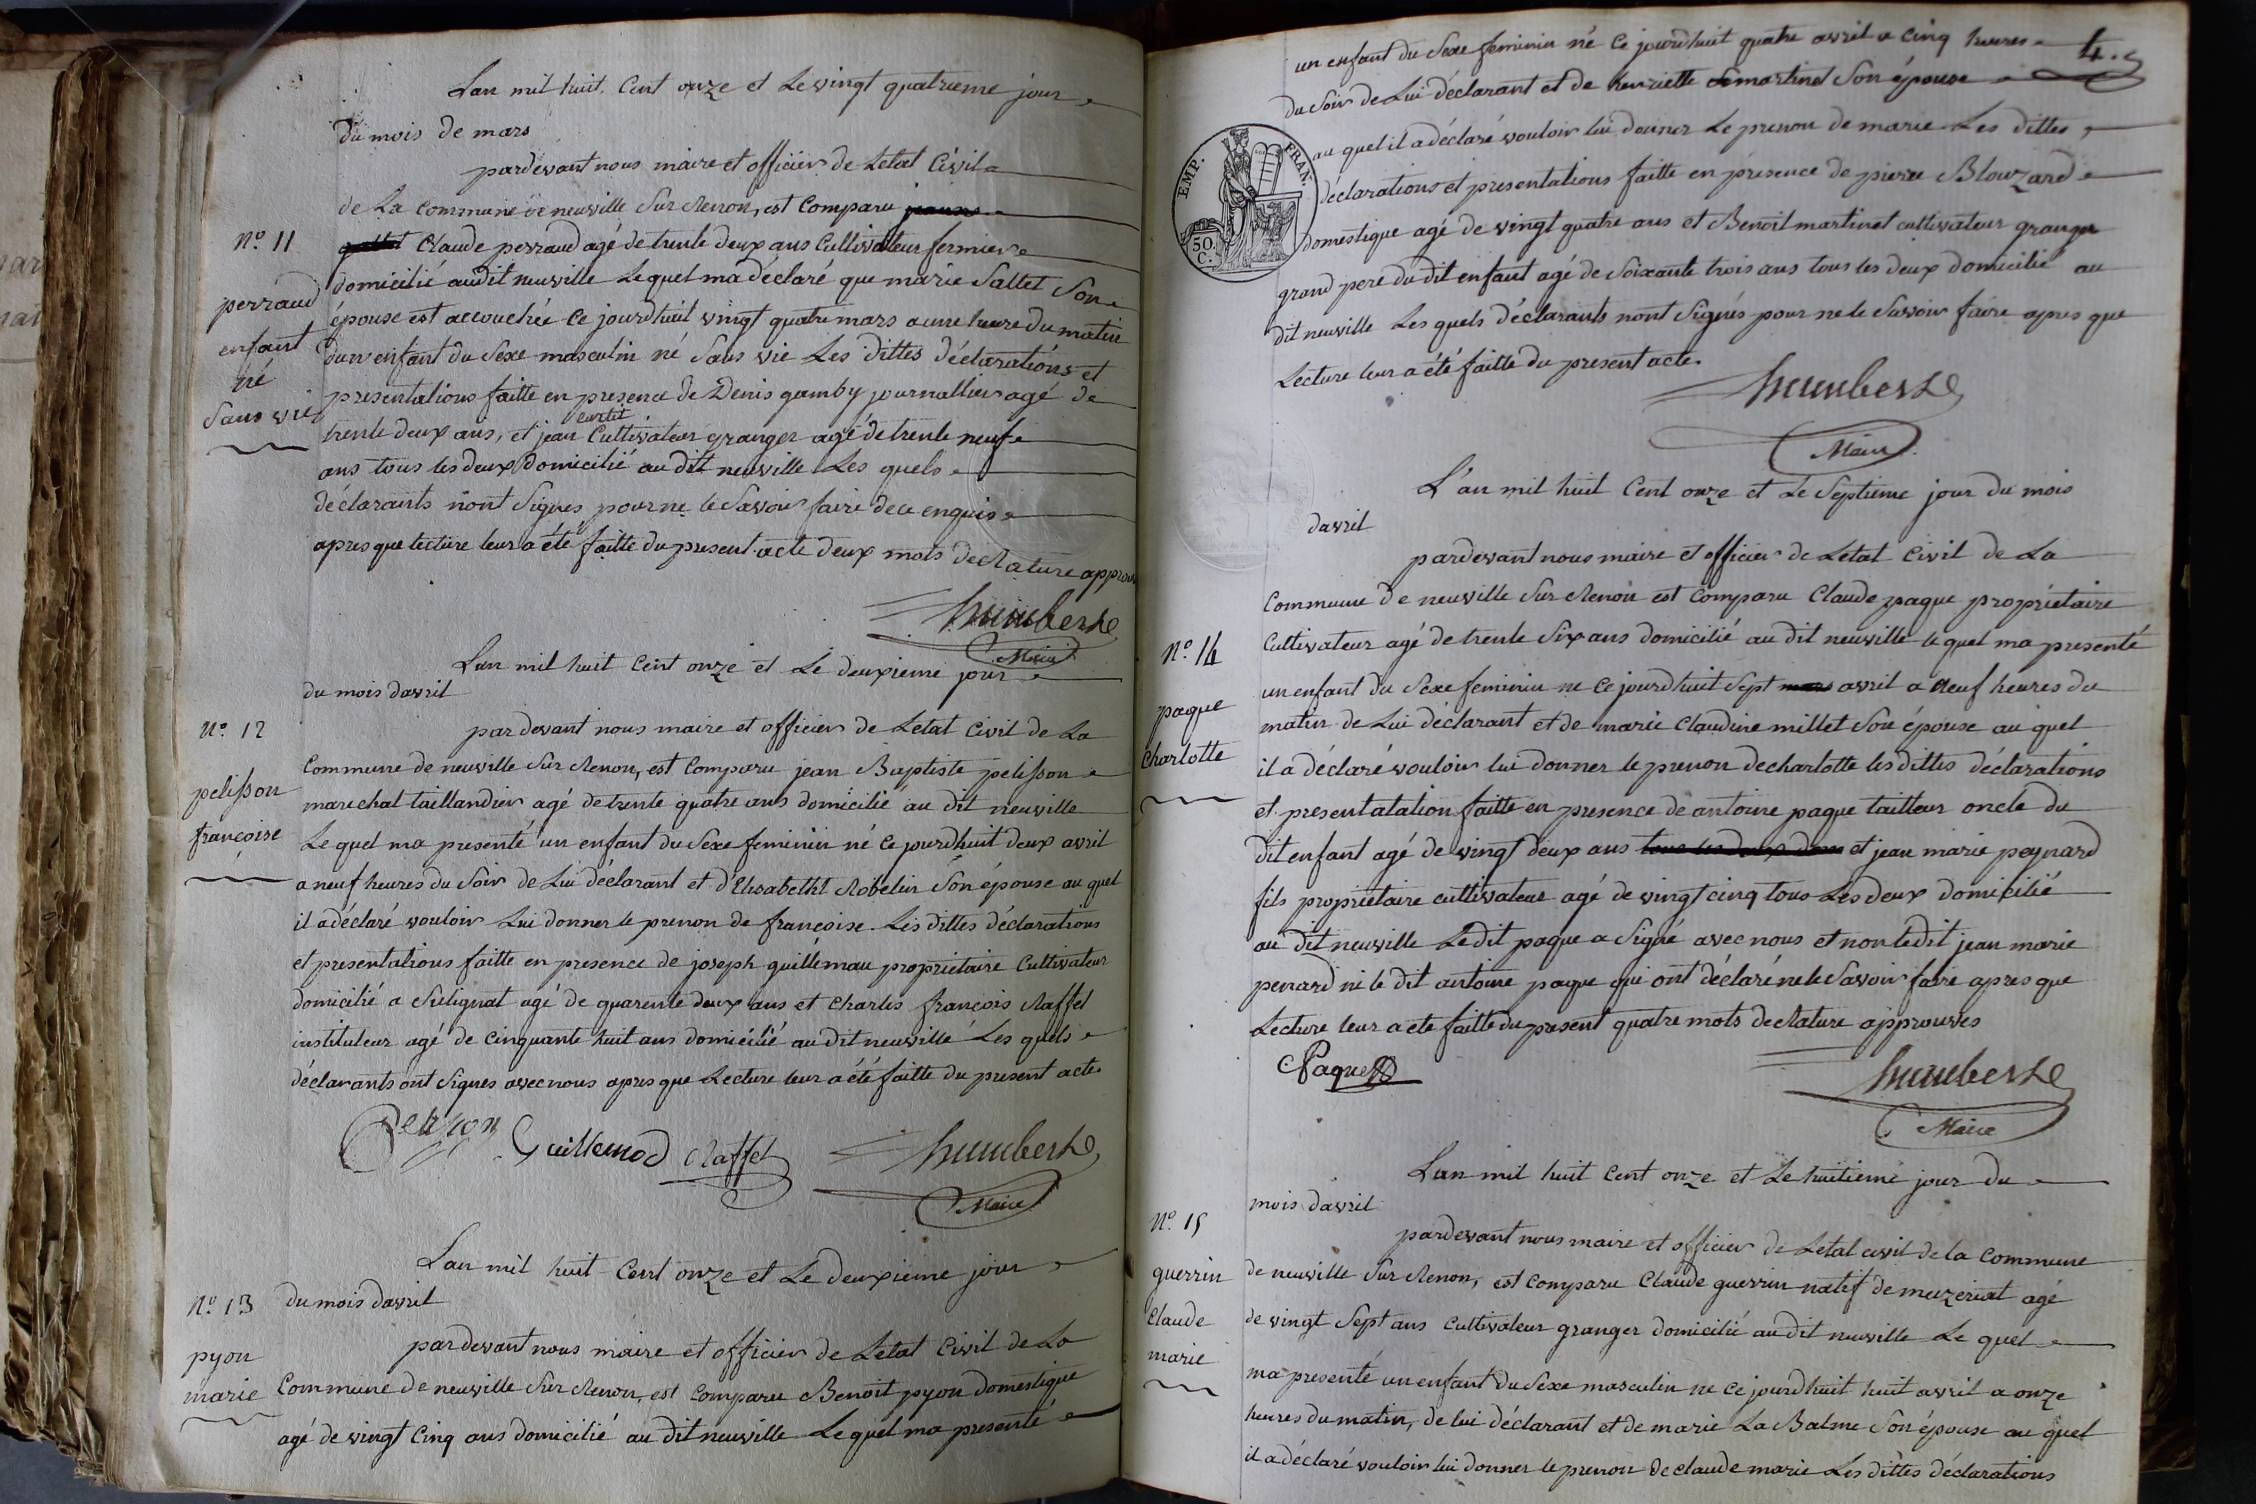 Lan mil huit Cent onze et Le vingt quatrieme jour
du mois de mars
pardevant nous maire et officier de Letat Civil
de La Commune de neuville Sur Renon, est Comparu
Nº 11
Claude perraud agé de trente deux ans Cultivateur fermier
domicilié audit neuville Lequel ma déclaré que marie Sallet Son
perraud
enfant
né
Sans vie
épouse est accouchée Ce jourdhuit vingt quatre mars a une heure du matin
dun enfant du Sexe masculin né Sans vie Les dittes déclarations et
presentations faitte en presence de Denis gamby journallier agé de
trente deux ans, et jean curtit Cultivateur granger agé de trente neuf
ans tous les deux domicilié au dit neuville Les quels
déclarants nont Signés pour ne le Savoir faire de ce enquis
apres que lecture leur a été faitte du present acte deux mots de Rature approuv
humbert
Maire
Lan mil huit Cent onze et Le deuxieme jour
du mois davril
Nº 12
pelisson
françoise
par devant nous maire et officier de Letat Civil de La
Commune de neuville Sur Renon, est Comparu jean Baptiste pelisson
marechal taillandier agé de trente quatre ans domicilié au dit neuville
Le quel ma presenté un enfant du Sexe feminin né Ce jourdhuit deux avril
a neuf heures du Soir de Lui déclarant et d'Elisabetht Robelin Son épouse au quel
il a déclaré vouloir Lui donner le prenon de françoise. Les dittes déclarations
et presentations faitte en presence de joseph guillemau proprietaire Cultivateur
domicilié a Sulignat agé de quarente deux ans et Charles françois Raffel
instituteur agé de Cinquante huit ans domicilié au dit neuville Les quels
déclarants ont Signes avec nous apres que Lecture leur a été faitte du present acte
Guillemod Raffel humbert
Maire
Lan mil huit Cent onze et Le deuxieme jour
du mois davril
Nº 13
pyon
marie
pardevant nous maire et officier de Letat Civil de La
Commune de neuville Sur Renon, est Comparu Benoit pyon domestique
agé de vingt Cinq ans domicilié au dit neuville Le quel ma presenté
4.
un enfant du Sexe feminin né Ce jourdhuit quatre avril a Cinq heures
du Soir de Lui déclarant et de henriette martinet Son épouse
au quel il a déclaré vouloir lui donner Le prenon de marie Les dittes
déclarations et presentations faitte en présence de pierre Blouzard
domestique agé de vingt quatre ans et Benoit martinet cultivateur granger
grand pere du dit enfant agé de Soixante trois ans tous les deux domicilié au
dit neuville Les quels déclarants nont Signés pour ne le Savoir faire apres que
Lecture leur a été faitte du present acte.
EMP. FRAN.
50. C.
humbert
Maire
L'an mil huit Cent onze et Le Septieme jour du mois
davril
pardevant nous maire et officier de Letat Civil de La
Commune de neuville Sur Renon est Comparu Claude paque propriétaire
Nº 14
paque
Charlotte
Cultivateur agé de trente Six ans domicilié au dit neuville le quel ma presenté
un enfant du Sexe feminin ne Ce jourdhuit Sept mars avril a neuf heures du
matin de Lui déclarant et de marie Claudine millet Son épouse au quel
il a déclaré vouloir lui donner le prenon de charlotte les dittes déclarations
et presentatation faitte en presence de antoine paque tailleur oncle du
dit enfant agé de vingt deux ans tous les deux dom et jean marie peynard
fils propriétaire cultivateur agé de vingt cinq tous Les deux domicilié
au dit neuville Le dit paque a Signé avec nous et non le dit jean marie
penard ni le dit antoine paque qui ont déclaré ne le Savoir faire apres que
Lecture leur a été faitte du present quatre mots de Rature approuvés
Paque
humbert
Maire
Lan mil huit Cent onze et Le huitieme jour du
mois davril
Nº 15
guerrin
Claude
marie
pardevant nous maire et officier de Letat civil de la Commune
de neuville Sur Renon, est Comparu Claude guerrin natif de mezeriat agé
de vingt Sept ans Cultivateur granger domicilié au dit neuville Le quel
ma presenté un enfant du Sexe masculin ne Ce jourdhuit huit avril a onze
heures du matin, de lui déclarant et de marie La Balme Son épouse au quel
il a déclaré vouloir lui donner le prenon de claude marie Les dittes déclarations